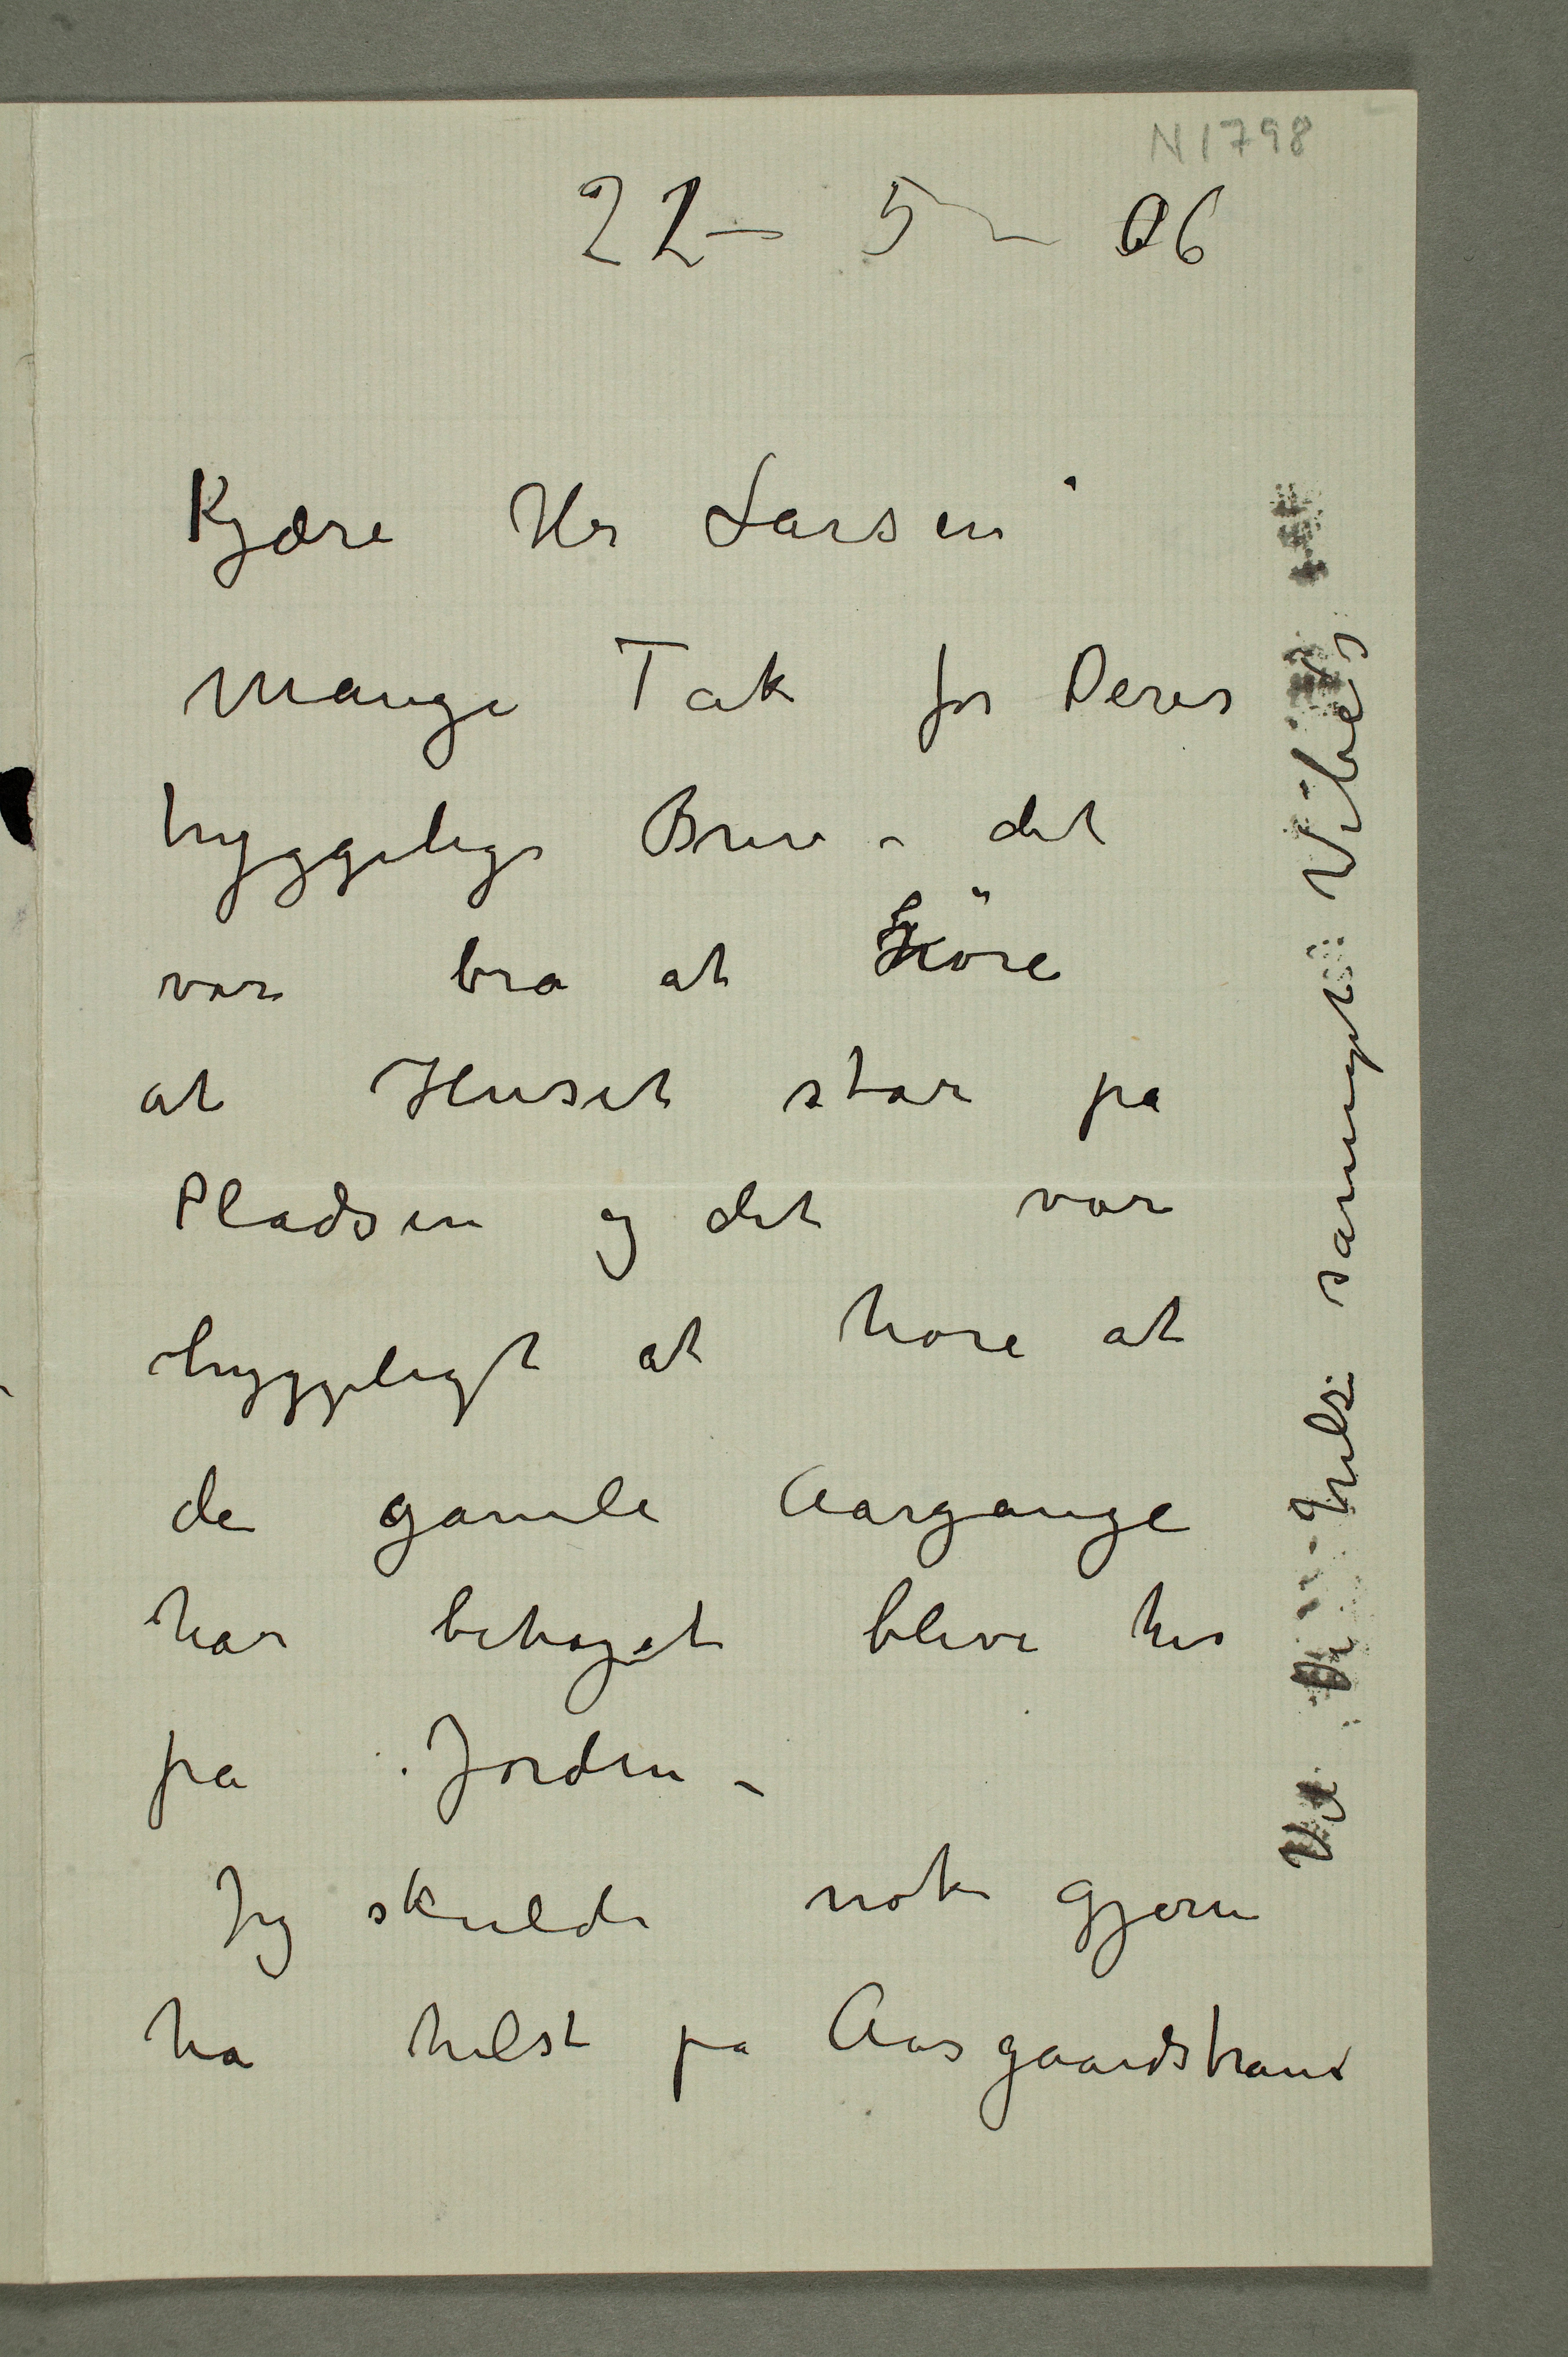 N1798
22 – 5 – 06
Kjære Hr Larsen
Mange Tak for Deres
hyggelige Brev – det
var bra at höre
at Huset står på
Pladsen og det var
hyggeligt at höre at
de gamle Aargange
har behaget blive her
på Jorden –
Jeg skulde nok gjerne
ha hilst på Aasgaardstrand
Vil De hilse samtligt Vibes